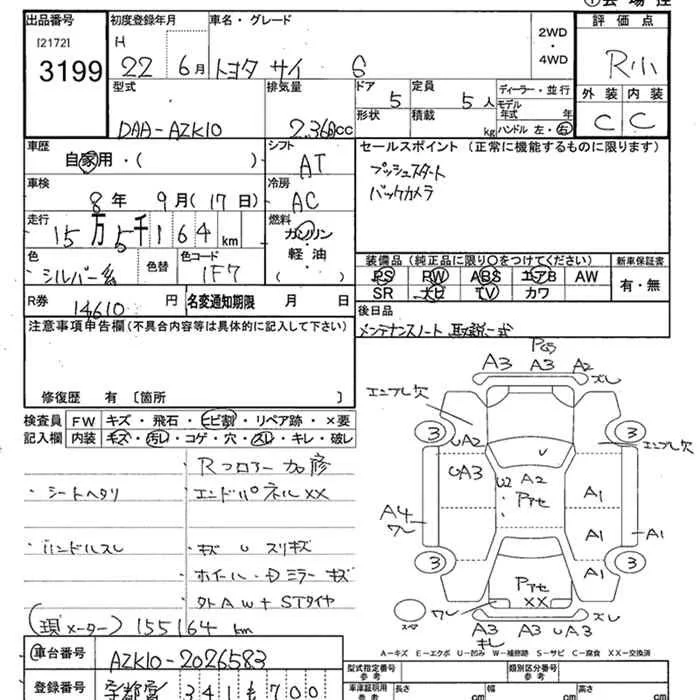 出品番号
[2172]
3199
初度登録年月
H
22 6月
車名・グレード
トヨタ サイ G
2WD
・
4WD
評価点
外装 内装
C C
型式
DAA-AZK10
排気量
2.360cc
ドア 5
定員 5人
形状
積載 kg
ディーラー・並行
モデル年式 年
ハンドル 左・右
車歴
自家用・( )
シフト
AT
セールスポイント (正常に機能するものに限ります)
プッシュスタート
バックカメラ
車検
8年 9月(17日)
冷房
AC
走行
15万5千164km
燃料
ガソリン
・
軽油
( )
色
シルバー系
色替
色コード
1F7
装備品 (純正品に限り○をつけてください)
PS PW ABS エアB AW
SR ナビ TV カワ
新車保証書
有・無
R券 14610円
名変通知期限 月 日
後日品
メンテナンスノート 取説一式
注意事項申告欄(不具合内容等は具体的に記入して下さい)
修復歴 有〔箇所 〕
検査員
記入欄
FW キズ・飛石・ヒビ割・リペア跡・×要
内装 キズ・汚レ・コゲ・穴・スレ・キレ・破レ
Rフロアー 加修
・シートヘタリ
・エンドパネルXX
・ハンドルスレ
・キズ U スリキズ
・ホイール・Dミラー キズ
・タトAW+STタイヤ
(現メーター) 155164 km
A3 A3 A2
ズレ
エンプレ欠
3 3
UA2
エンプレ欠
UA3
U
U2 A2
Pアセ
A1
A4
ワレ
A1
A1
3 3
A1
Pアセ
XX
ワレ
ズレ
スペア
A3 A3 UA3
キレ
A-キズ E-エクボ U-凹み W-補修跡 S-サビ C-腐食 XX-交換済
車台番号
AZK10-2026583
登録番号
宇都宮 341 も 700
型式指定番号
参考
類別区分番号
参考
車庫証明用
参考
長さ cm
幅 cm
高さ cm